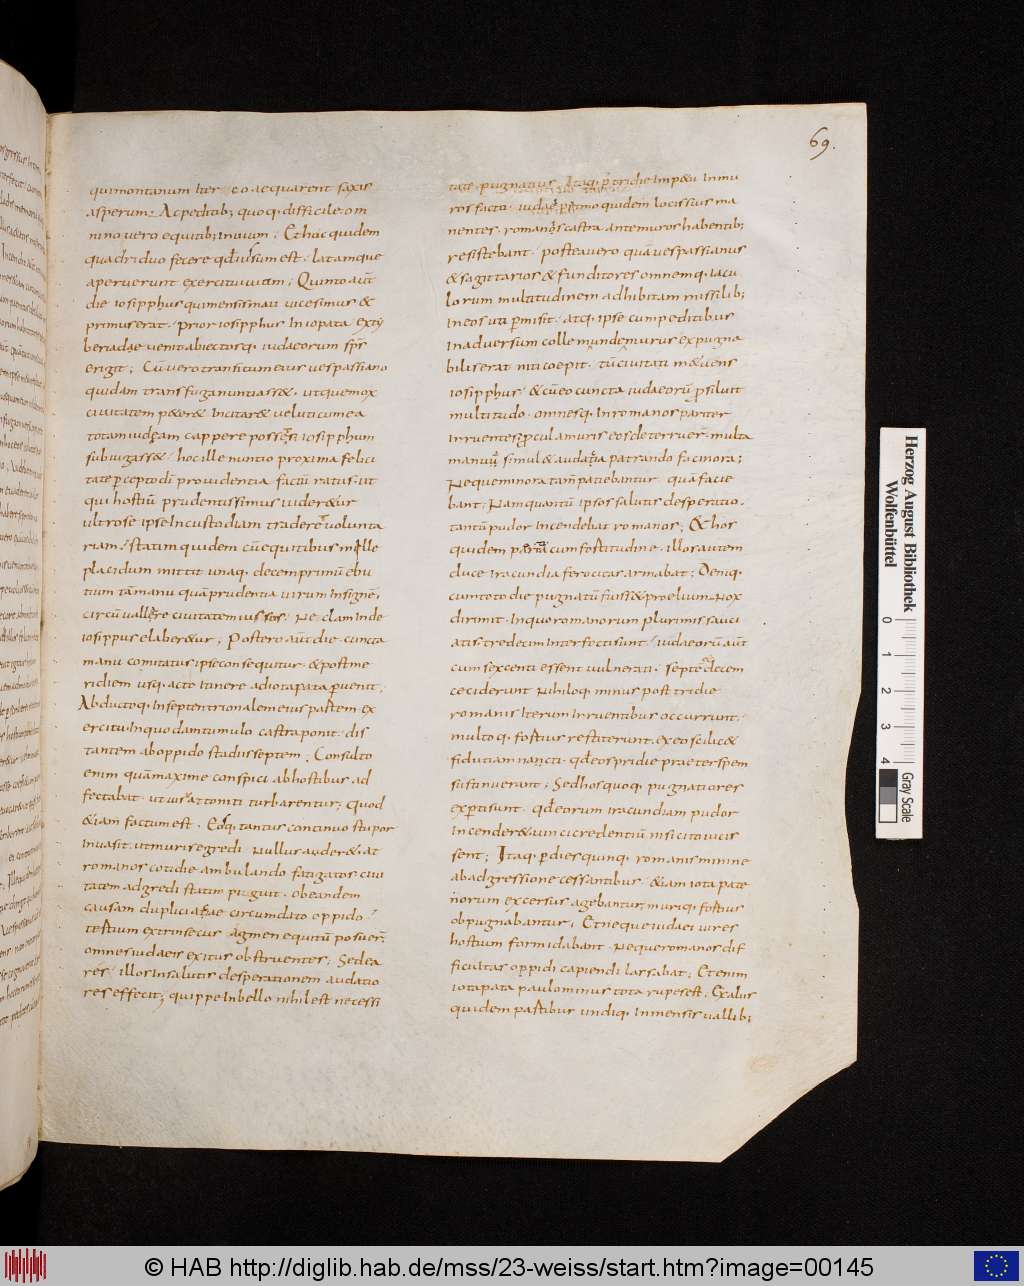 69.
qui montanum iter coaequarent saxis
asperum; Ac peditib; quoq. difficile. om
nino vero equitib; inuium; Et hac quidem
quadriduo fecere qd iussum est. latamque
aperuerunt exercitui uiam; Quinto aut
die iosipphus qui mensis maii uicesimus &
primus erat. prior iosipphus in iopata exty
beriadae uenit abiectosq. iudaeorum sps
erigit; Cu vero transitum eius vespassiano
quidam transfuga nuntiass&. utque mox
ciuitatem p&er& incitar& velut cum ea
totam iudeam cappere poss& si iosipphum
subiugass&. hoc ille nuntio proxima felici
tate percepto di providentia factu ratus. ut
qui hostiu prudentissimus uider&ur
ultro se ipse in custodiam trader& volunta
riam. statim quidem cu equitibus mille
placidum mittit unaq. decemprimu ebu
tium ta manu qua prudentia uirum insigne,
circu uallare ciuitatem iussos. Ne clam inde
iosippus elaber&ur; Postero aut die cuncta
manu comitatus ipse consequitur. & post me
ridiem usq. acto itinere ad iotapata pervenit;
Abductoq. in septentrionalem eius partem ex
ercitu. in quodam tumulo castra ponit. dis
tantem ab oppido stadiis septem. Consulto
enim quam maxime conspici ab hostibus ad
fectabat. ut uisa attoniti turbarentur; quod
&iam factum est. Eosq. tantus continuo stupor
inuasit. ut muris egredi Nullus auder&. at
romanos cotidie ambulando fatigatos ciui
tatem adgredi statim piguit. obeandem
causam duplici acie circumdato oppido
tertium extrinsecus agmen equitu posuer;
omnes iudaeis exitus obstruentes; Sed ea
res. illos in salutis desperationem audatio
res effecit; quippe in bello nihil est necessi
tate pugnatius. Itaq. pstridie imp&u in mu
ros facto. iudaei primo quidem locis suis ma
nentes. romanos castra ante muros habentib;
resistebant. postea vero qua vespassianus
& sagittarios & funditores omnemq. iacu
lorum multitudinem adhibitam missilib;
in eos uti permisit. atq. ipse cum peditibus
in adversum collem unde murus expugna
bilis erat niti coepit. tu ciuitati m&uens
iosipphus. & cu eo cuncta iudaeoru prosiluit
multitudo. omnesq. in romanos pariter
inruentes procul a muris eos deterruer. multa
manuu simul & audatia patrando facinora;
Neque minora tam patiebantur. qua facie
bant; Nam quantu ipsos salutis desperatio.
tantu pudor incendebat romanos; & hos
quidem peritia cum fortitudine. illos autem
duce iracundia ferocitas armabat; Deniq.
cum toto die pugnatu fuiss& proelium Nox
dirimit. in quo romanorum plurimis sauci
atis. tredecim interfecti sunt. iudaeoru aut
cum sexcenti essent uulnerati. septe decem
ceciderunt Nihiloq. minus postridie
romanis iterum inruentibus occurrunt.
multoq. fortius restiterunt. ex eo scilic&
fidutiam nancti. qd eos pridie praeter spem
sustinuerant; Sed hos quoq. pugnatiores
experti sunt. qd eorum iracundiam pudor
incender& uinci credentiu nisi cito uicis
sent; Itaq. p dies quinq. romanis minime
ab adgressione cessantibus. &iam iotapate
norum excursus agebantur, muriq. fortius
obpugnabantur; Et neque iudaei uires
hostium formidabant. Neque romanos dif
ficultas oppidi capiendi lassabat; Etenim
iotapata paulo minus tota rupes est. Ex aliis
quidem partibus undiq. inmensis uallib;
Herzog August Bibliothek
Wolfenbüttel
0 1 2 3 4
Gray Scale
© HAB http://diglib.hab.de/mss/23-weiss/start.htm?image=00145